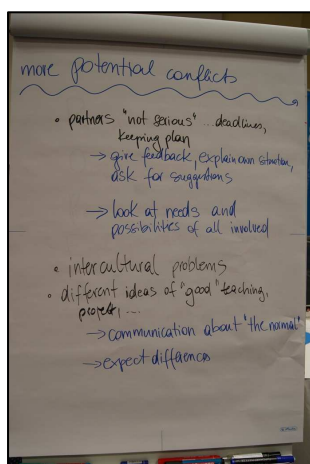 more potential conflicts
• partners "not serious" ... deadlines,
keeping plan
→ give feedback, explain own situation,
ask for suggestions
→ look at needs and
possibilities of all involved
• intercultural problems
• different ideas of "good" teaching,
project, ...
→ communication about "the normal"
→ expect differences